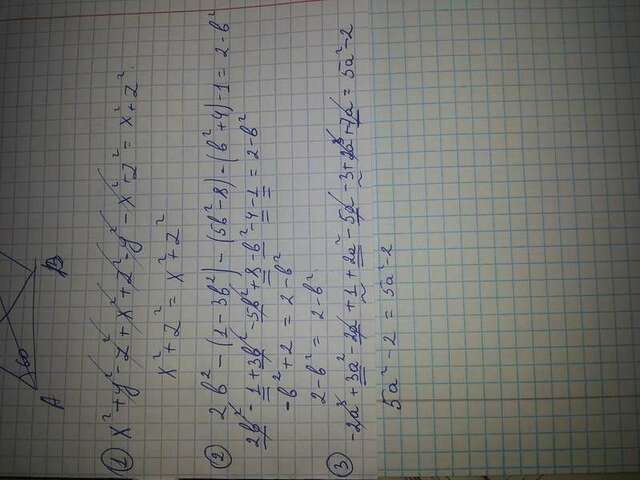 60
A B
① x² + y² - z² + x² + z² - y² - x² + z² = x² + z²
x² + z² = x² + z²
② 2b² - (1 - 3b²) - (5b² - 8) - (b² + 4) - 1 = 2 - b²
2b² - 1 + 3b² - 5b² + 8 - b² - 4 - 1 = 2 - b²
-b² + 2 = 2 - b²
2 - b² = 2 - b²
③ -2a³ + 3a² - 2a + 1 + 2a² - 5a - 3 + 2a³ + 7a = 5a² - 2
5a² - 2 = 5a² - 2